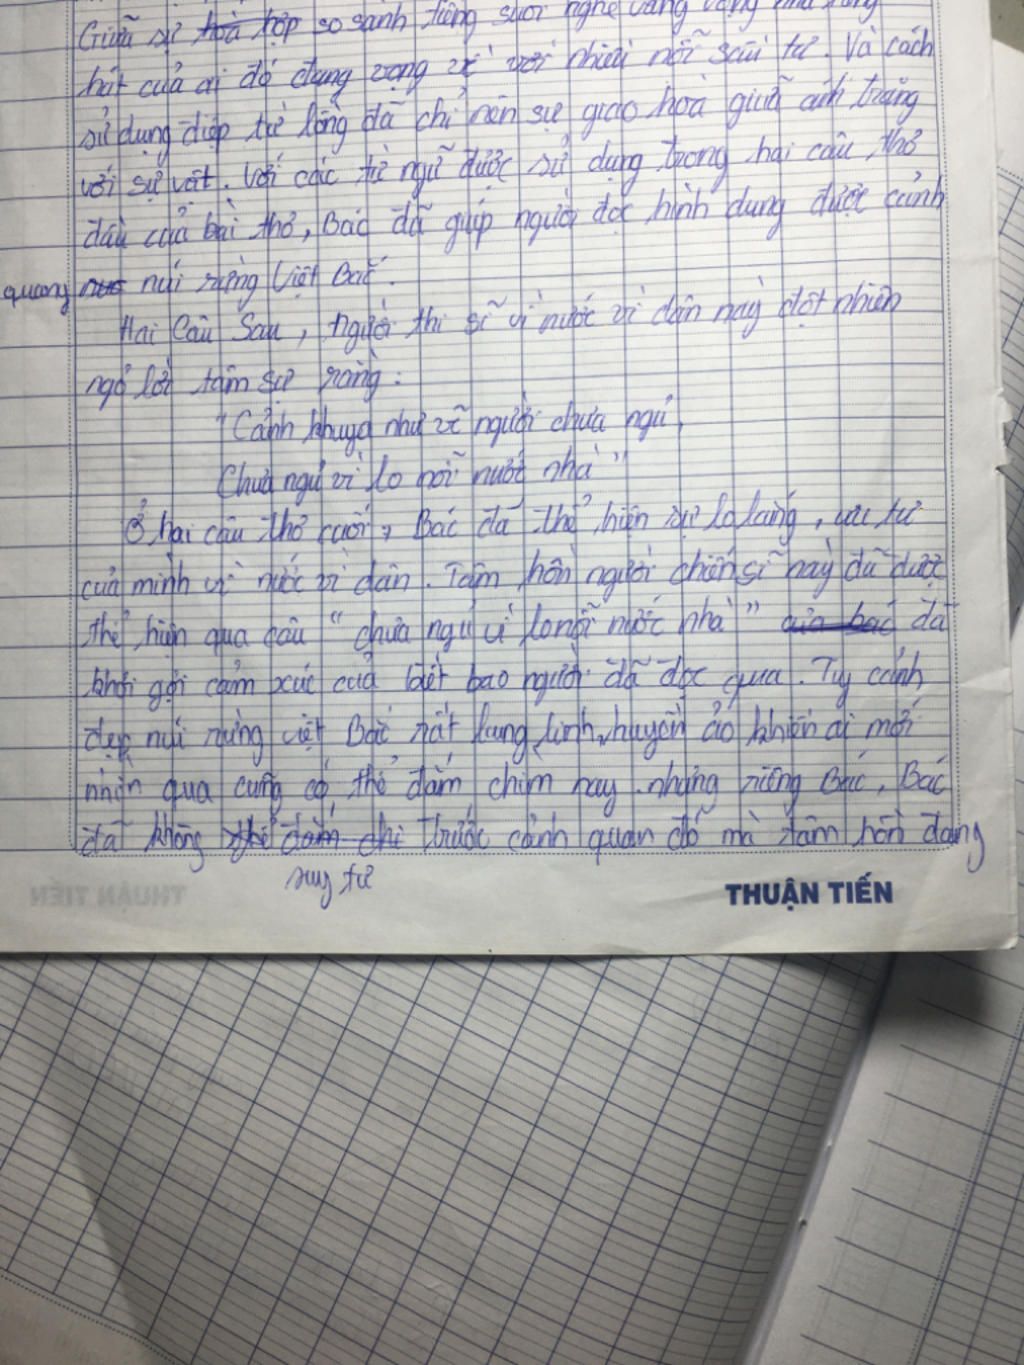 Giữa sự hoà hợp so sánh tiếng suối nghe văng vẳng như tiếng
hát của ai đó đang vọng về với nhiều nỗi sầu tư. Và cách
sử dụng điệp từ lồng đã chỉ nên sự giao hoà giữa ánh trăng
với sự vật. Với các từ ngữ được sử dụng trong hai câu thơ
đầu của bài thơ, Bác đã giúp người đọc hình dung được cảnh
quang núi rừng Việt Bắc.
Hai câu sau, người thi sĩ vì nước vì dân này đột nhiên
ngỏ lời tâm sự rằng:
"Cảnh khuya như vẽ người chưa ngủ,
Chưa ngủ vì lo nỗi nước nhà"
Ở hai câu thơ cuối, Bác đã thể hiện sự lo lắng, ưu tư
của mình vì nước vì dân. Tâm hồn người chiến sĩ này đã được
thể hiện qua câu "chưa ngủ vì lo nỗi nước nhà" của bác đã
khơi gợi cảm xúc của biết bao người đã đọc qua. Tuy cảnh
đẹp núi rừng việt Bắc rất lung linh, huyền ảo khiến ai mới
nhìn qua cũng có thể đắm chìm ngay. nhưng riêng Bác, Bác
đã không thể đắm chì trước cảnh quan đó mà tâm hồn đang
suy tư
THUẬN TIẾN